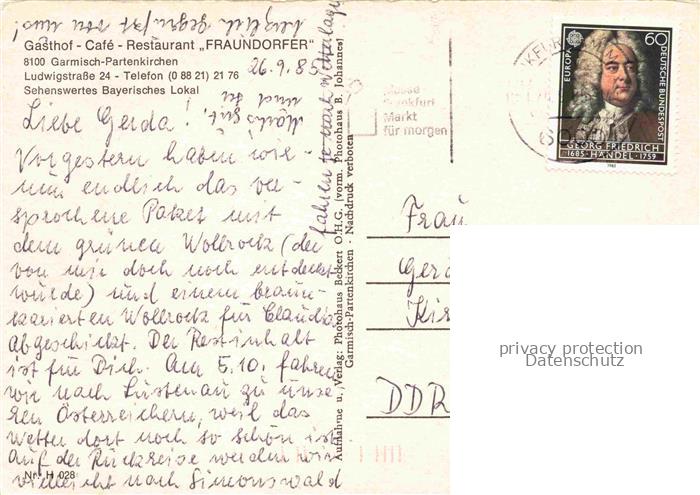 Gasthof - Café - Restaurant „FRAUNDORFER"
8100 Garmisch-Partenkirchen
Ludwigstraße 24 - Telefon (0 88 21) 21 76
Sehenswertes Bayerisches Lokal
26.9.85
Liebe Gerda!
Vorgestern haben wir
nun endlich das ver-
sprochene Paket mit
dem grünen Wollrock (der
von mir doch noch entdeckt
wurde) und einem braun-
karierten Wollrock für Claudia
abgeschickt. Der Restinhalt
ist für Dich. Am 5.10. fahren
wir nach Lustenau zu unse-
ren Österreichern, weil das
Wetter dort noch so schön ist.
Auf der Rückreise werden wir
vielleicht nach Simonswald
fahren
Machs gut, und sei
herzlich gegrüßt von
uns!
Nr. H 028
Aufnahme u. Verlag: Photohaus Beckert O.H.G. (vorm. Photohaus B. Johannes)
Garmisch-Partenkirchen - Nachdruck verboten
Messe
Frankfurt
Markt
für morgen
EUROPA
60
DEUTSCHE BUNDESPOST
GEORG FRIEDRICH
1685 · HÄNDEL · 1759
1985
Frau
Ger
DDR
privacy protection
Datenschutz